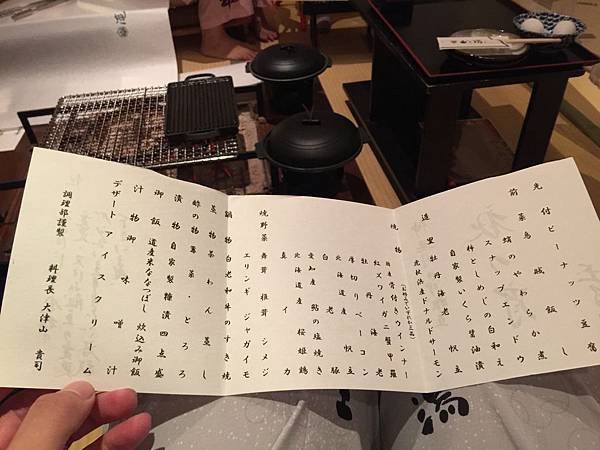 先付 ピーナッツ豆腐
前菜 烏賊飯
蛸のやわらか煮
スナップエンドウ
柿としめじの白和え
自家製いくら醤油漬
造里 牡丹海老 帆立
北松浜産ドナルドサーモン
焼物
骨付きウインナー
紅ズワイガニ蟹甲羅
牡丹海老
厚切りベーコン
北海道産 帆立
白老豚
愛知産 鮎の塩焼き
北海道産 桜姫鶏
真イカ
焼野菜 舞茸 椎茸 シメジ
エリンギ ジャガイモ
鍋物 白老和牛のすき焼
蒸物 茶わん蒸し
蕎麦・とろろ
漬物 自家製糠漬四点盛
御飯 道産米ななつぼし 炊込み御飯
汁物 御味噌汁
デザート アイスクリーム
調理部謹製 料理長 大津山 貴司